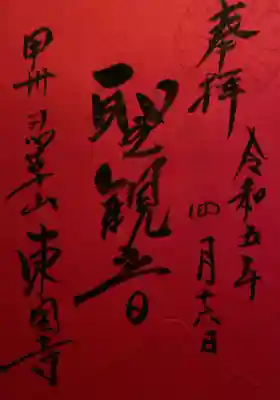 奉拝
令和五年
四月十六日
聖観音
甲州 山 東国寺